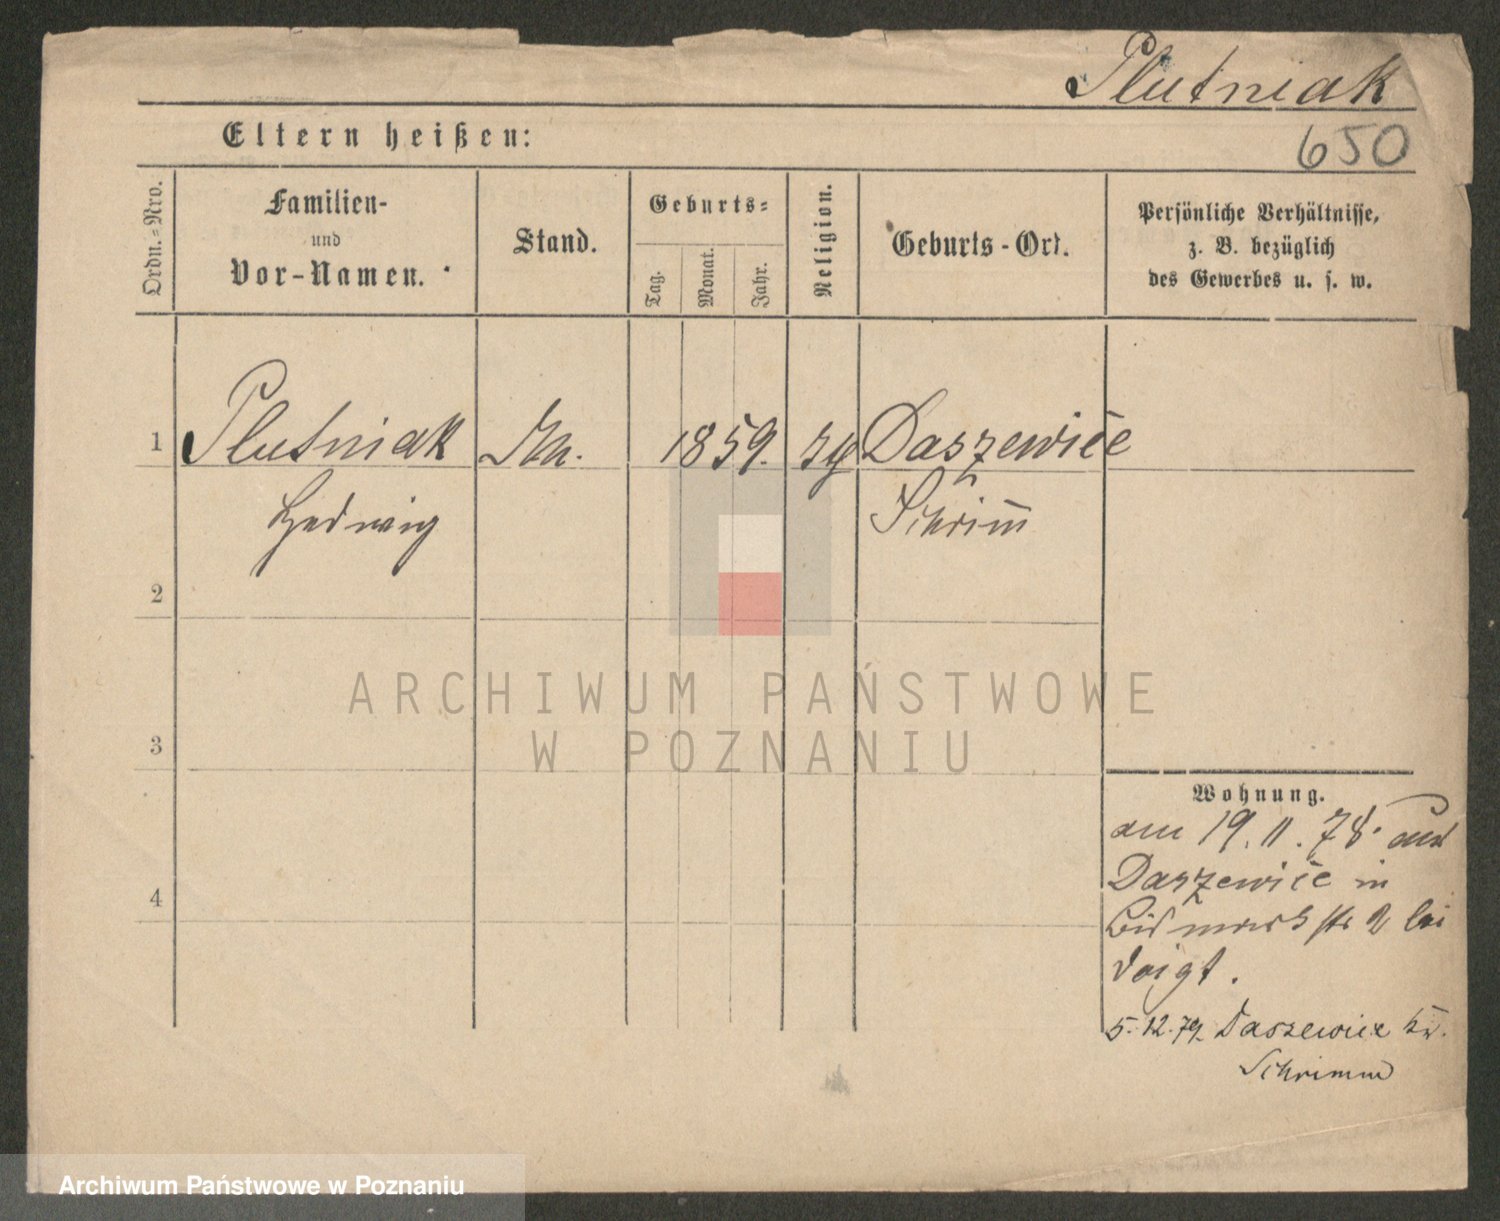 Plutniak
650
Eltern heißen:
Ordn.=Nro.
Familien-
und
Vor-Namen.
Stand.
Geburts=
Tag.
Monat.
Jahr.
Religion.
Geburts-Ort.
Persönliche Verhältnisse,
z. B. bezüglich
des Gewerbes u. s. w.
1 Plutniak 1859. Daszewice
Hedwig Schrim̅
2
3
4
Wohnung.
am 19.11.78. aus
Daszewice in
Bismarckstr 2 bei
Voigt.
5.12.79. Daszewice
Schrimm
ARCHIWUM PAŃSTWOWE
W POZNANIU
Archiwum Państwowe w Poznaniu